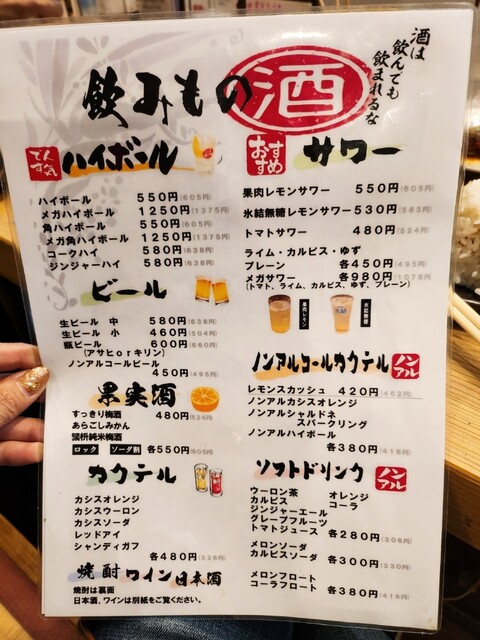 酒は
飲んでも
飲まれるな
飲みもの 酒
でんす気 ハイボール
ハイボール 550円(605円)
メガハイボール 1250円(1375円)
角ハイボール 550円(605円)
メガ角ハイボール 1250円(1375円)
コークハイ 580円(638円)
ジンジャーハイ 580円(638円)
ビール
生ビール 中 580円(638円)
生ビール 小 460円(504円)
瓶ビール 600円(660円)
(アサヒorキリン)
ノンアルコールビール
450円(495円)
果実酒
すっきり梅酒 480円(528円)
あらごしみかん
鶯杮純米梅酒
ロック ソーダ割 各550円(605円)
カクテル
カシスオレンジ
カシスウーロン
カシスソーダ
レッドアイ
シャンディガフ
各480円(528円)
焼酎 ワイン 日本酒
焼酎は裏面
日本酒、ワインは別紙をご覧ください。
おすすめ サワー
果肉レモンサワー 550円(605円)
氷結無糖レモンサワー530円(583円)
トマトサワー 480円(524円)
ライム・カルピス・ゆず
プレーン 各450円(495円)
メガサワー 各980円(1078円)
(トマト、ライム、カルピス、ゆず、プレーン)
果肉レモン
氷結無糖
ノンアルコールカクテル ノンアル
レモンスカッシュ 420円(462円)
ノンアルカシスオレンジ
ノンアルシャルドネ
スパークリング
ノンアルハイボール
各380円(418円)
ソフトドリンク ノンアル
ウーロン茶 オレンジ
カルピス コーラ
ジンジャーエール
グレープフルーツ
トマトジュース 各280円(308円)
メロンソーダ
カルピスソーダ 各300円(330円)
メロンフロート
コーラフロート 各380円(418円)